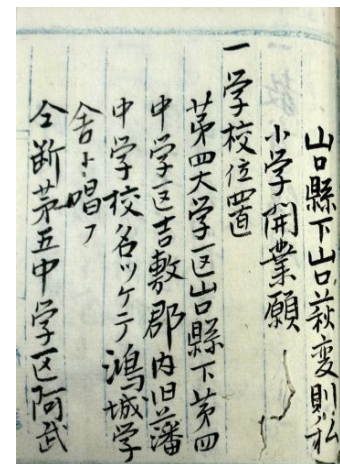 山口縣下山口萩変則私
小学開業願
一学校位置
第四大学区山口縣下第四
中学区吉敷郡内旧藩
中学校名ツケテ鴻城学
舎ト唱フ
仝断第五中学区阿武